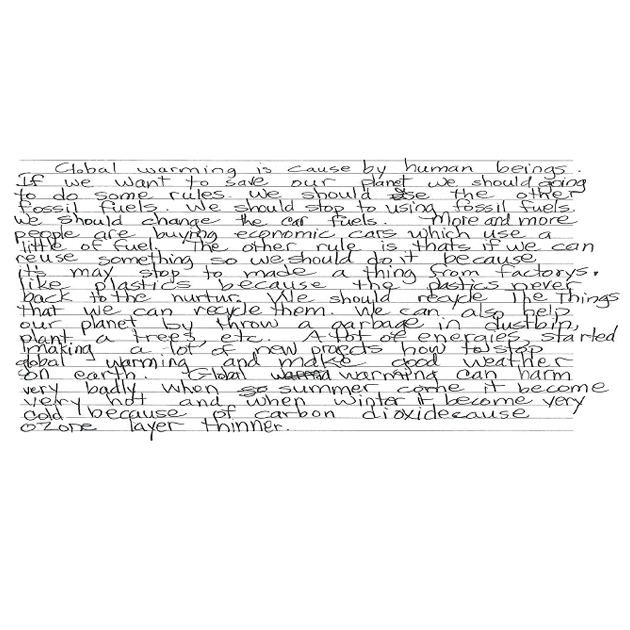 Global warming is cause by human beings.
If we want to save our planet we should going
to do some rules. we should use the other
fossil fuels. We should stop to using fossil fuels.
We should change the car fuels. More and more
people are buying economic cars which use a
little of fuel. The other rule is, thats if we can
reuse something so we should do it because
it's may stop to made a thing from factorys.
like plastics because the plastics never
back to the nurtur. We should recycle The Things
that we can recycle them. We can also help
our planet by throw a garbage in dustbin,
plant a trees, etc. A lot of energies, started
making a lot of new projects how to stop
global warming and make good weather
on earth. Global warming can harm
very badly when summer come it become
very hot and when winter it become very
cold because of carbon dioxide cause
ozone layer thinner.